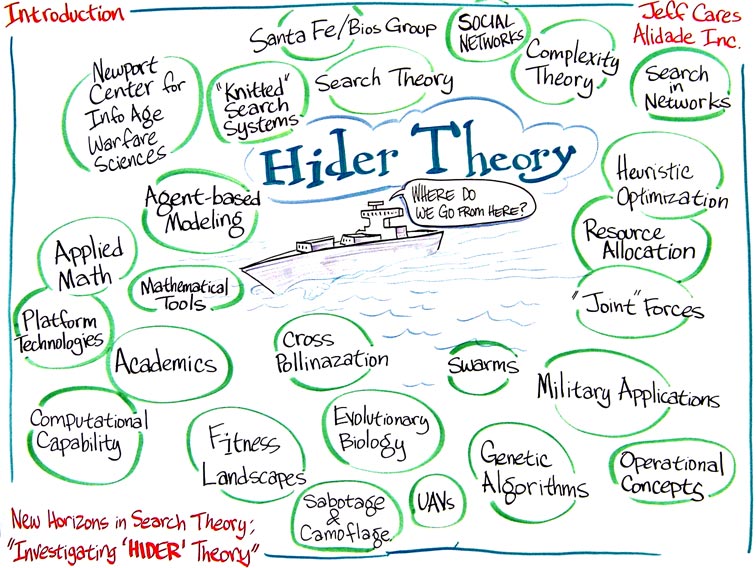 Introduction
Santa Fe/Bios Group
SOCIAL
NETWORKS
Complexity
Theory
Jeff Cares
Alidade Inc.
Newport
Center for
Info Age
Warfare
Sciences
"Knitted"
Search
Systems
Search Theory
Search
in
Networks
Hider Theory
Heuristic
Optimization
Agent-based
Modeling
WHERE DO
WE GO FROM HERE?
Resource
Allocation
Applied
Math
Mathematical
Tools
"Joint" Forces
Platform
Technologies
Academics
Cross
Pollinazation
Swarms
Military Applications
Computational
Capability
Fitness
Landscapes
Evolutionary
Biology
Genetic
Algorithms
Operational
Concepts
Sabotage
&
Camoflage
UAVs
New Horizons in Search Theory:
"Investigating 'HIDER' Theory"